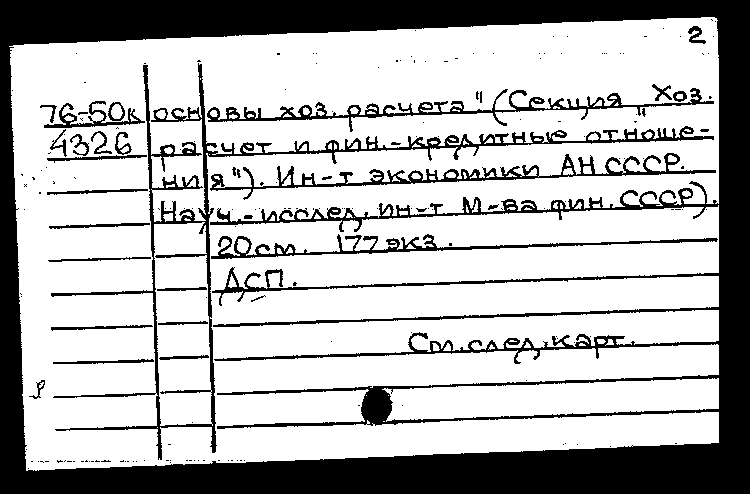 2
76-50к основы хоз. расчета" (Секция "Хоз.
4326 расчет и фин.-кредитные отноше-
ния"). Ин-т экономики АН СССР.
Науч.-исслед. ин-т М-ва фин. СССР).
20 см. 177 экз.
ДСП.
См. след. карт.